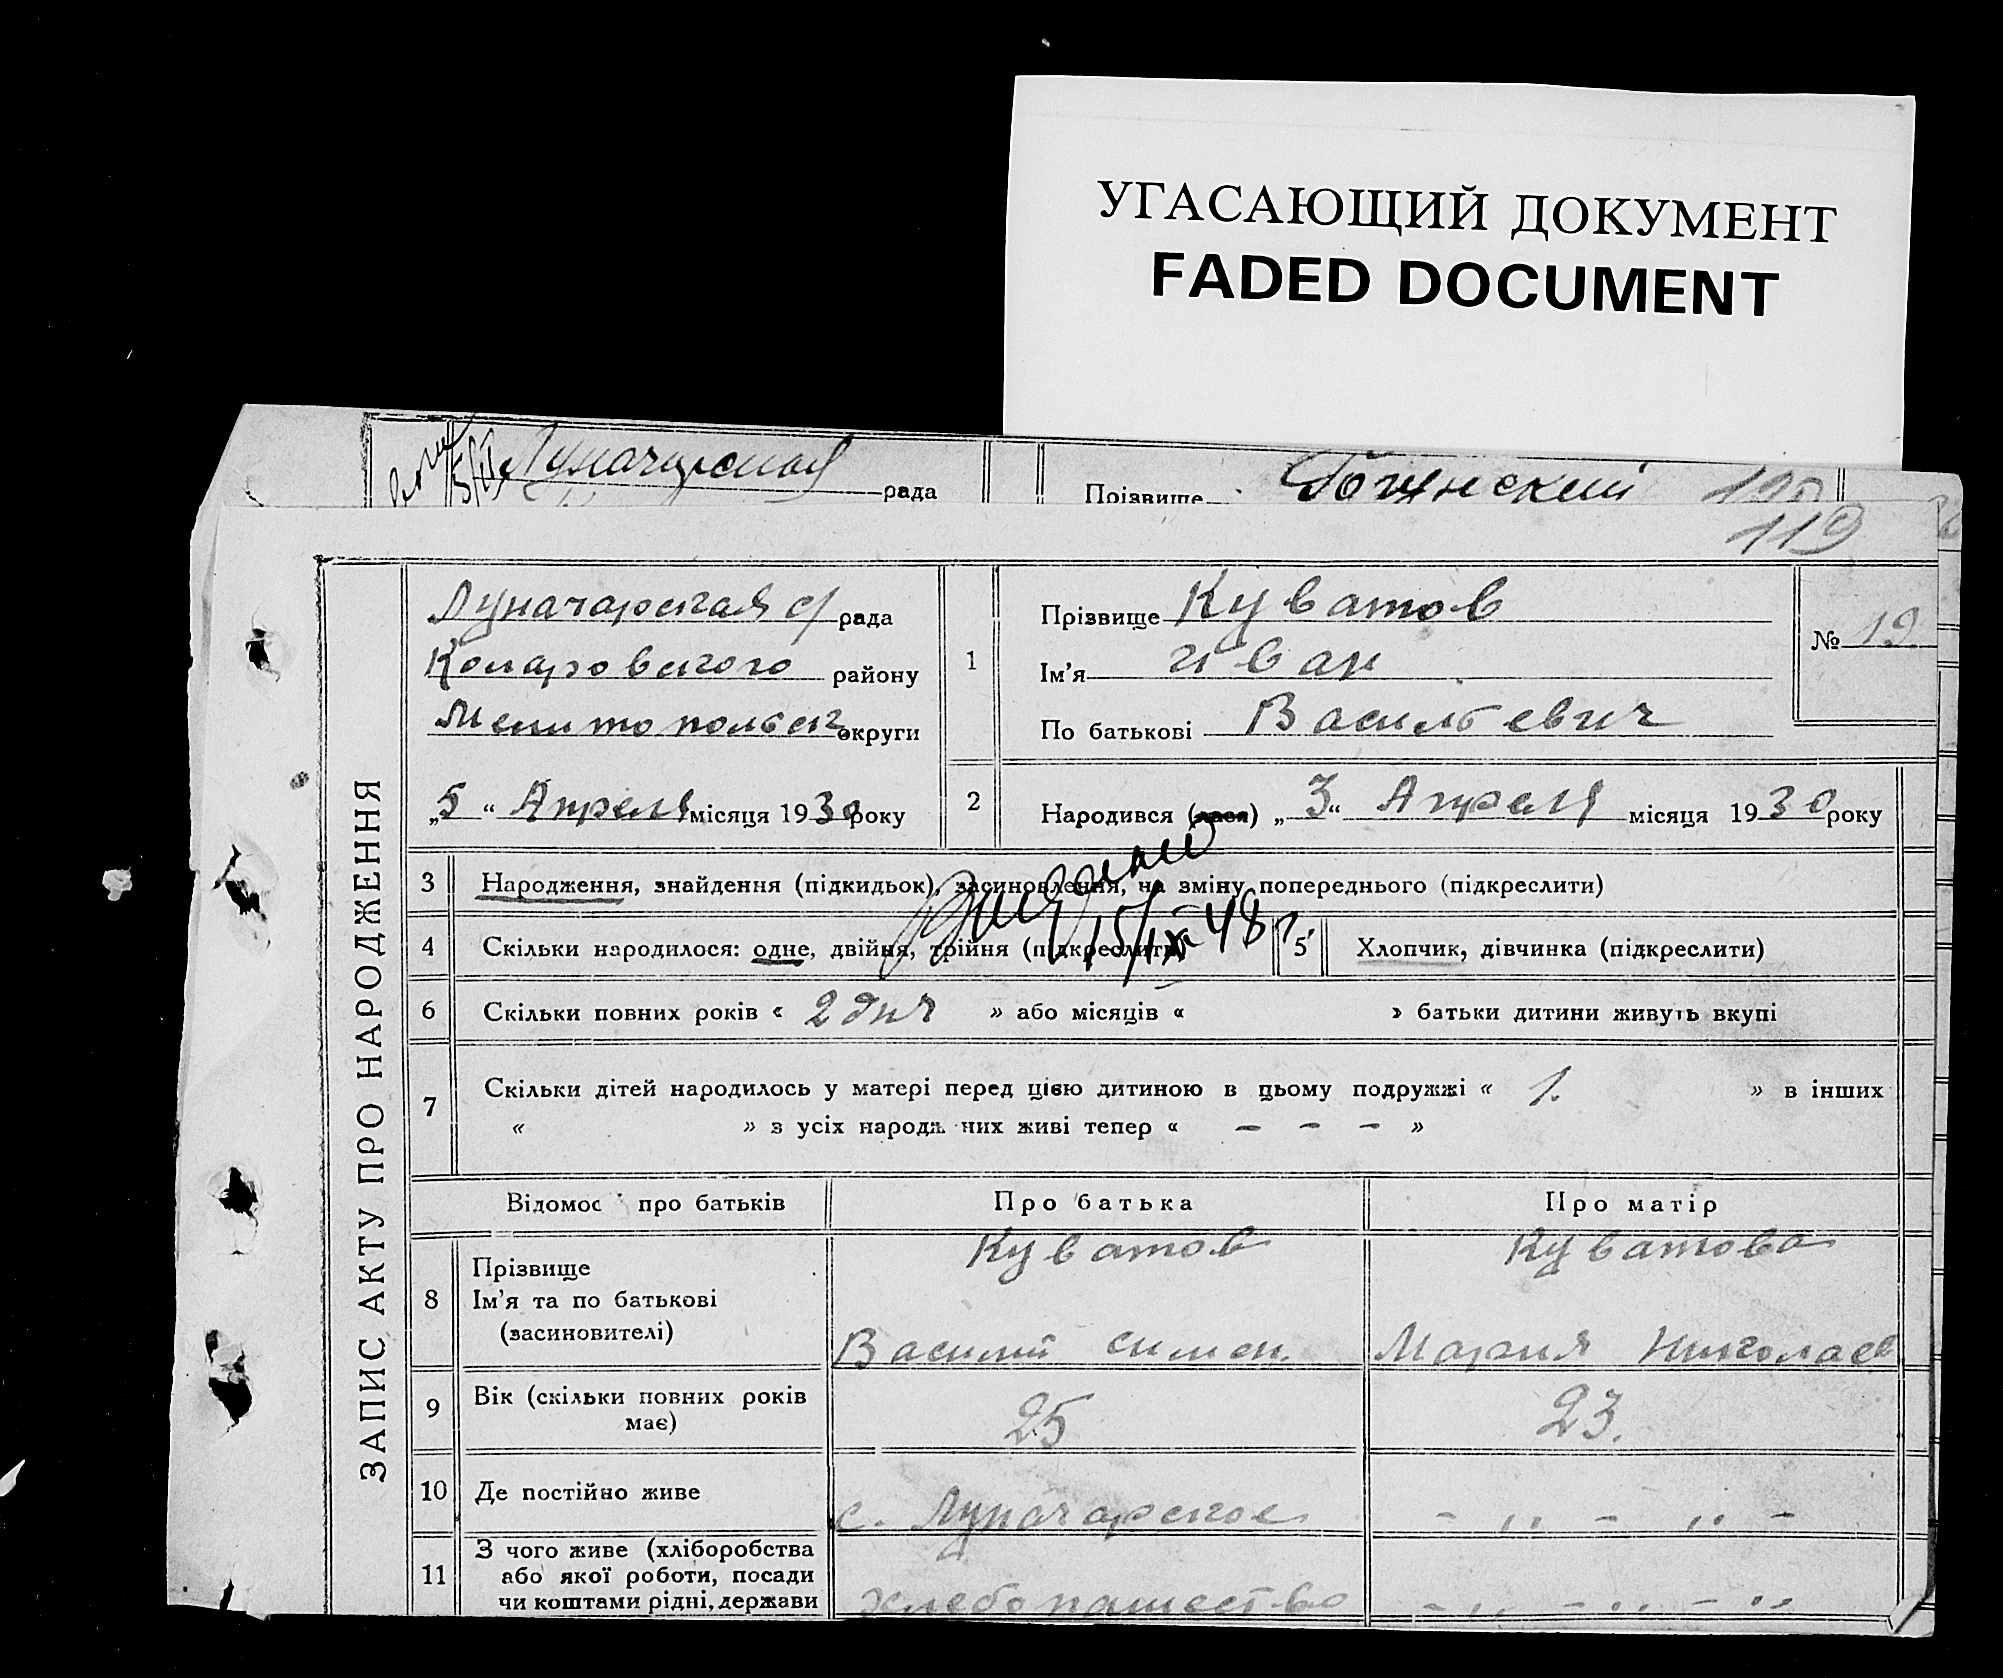 УГАСАЮЩИЙ ДОКУМЕНТ
FADED DOCUMENT
Луначарская рада
Прізвище
120
119
ЗАПИС АКТУ ПРО НАРОДЖЕННЯ
Луначарская с/рада
району
Мелитопольск округи
„5“ Апреля місяця 1930 року
1
Прізвище Куватов
Ім’я Иван
По батькові Васильевич
№ 19
2
Народився (лася) „3“ Апреля місяця 1930 року
3 Народження, знайдення (підкидьок), засиновлення, на зміну попереднього (підкреслити)
15/IX-48 г.
4 Скільки народилося: одне, двійня, трійня (підкреслити) 5 Хлопчик, дівчинка (підкреслити)
6 Скільки повних років « 2 дня » або місяців « » батьки дитини живуть вкупі
7 Скільки дітей народилось у матері перед цією дитиною в цьому подружжі « 1. » в інших
« » з усіх народж них живі тепер « – – – »
Відомос про батьків Про батька Про матір
8 Прізвище
Ім’я та по батькові
(засиновителі)
Куватов
Василий Симен.
Куватова
Мария Николаев
9 Вік (скільки повних років має) 25 23.
10 Де постійно живе с. Луначарское – ,, – ,, –
11 З чого живе (хліборобства
або якої роботи, посади
чи коштами рідні, держави
Хлебопашество – ,, – ,, – ,,